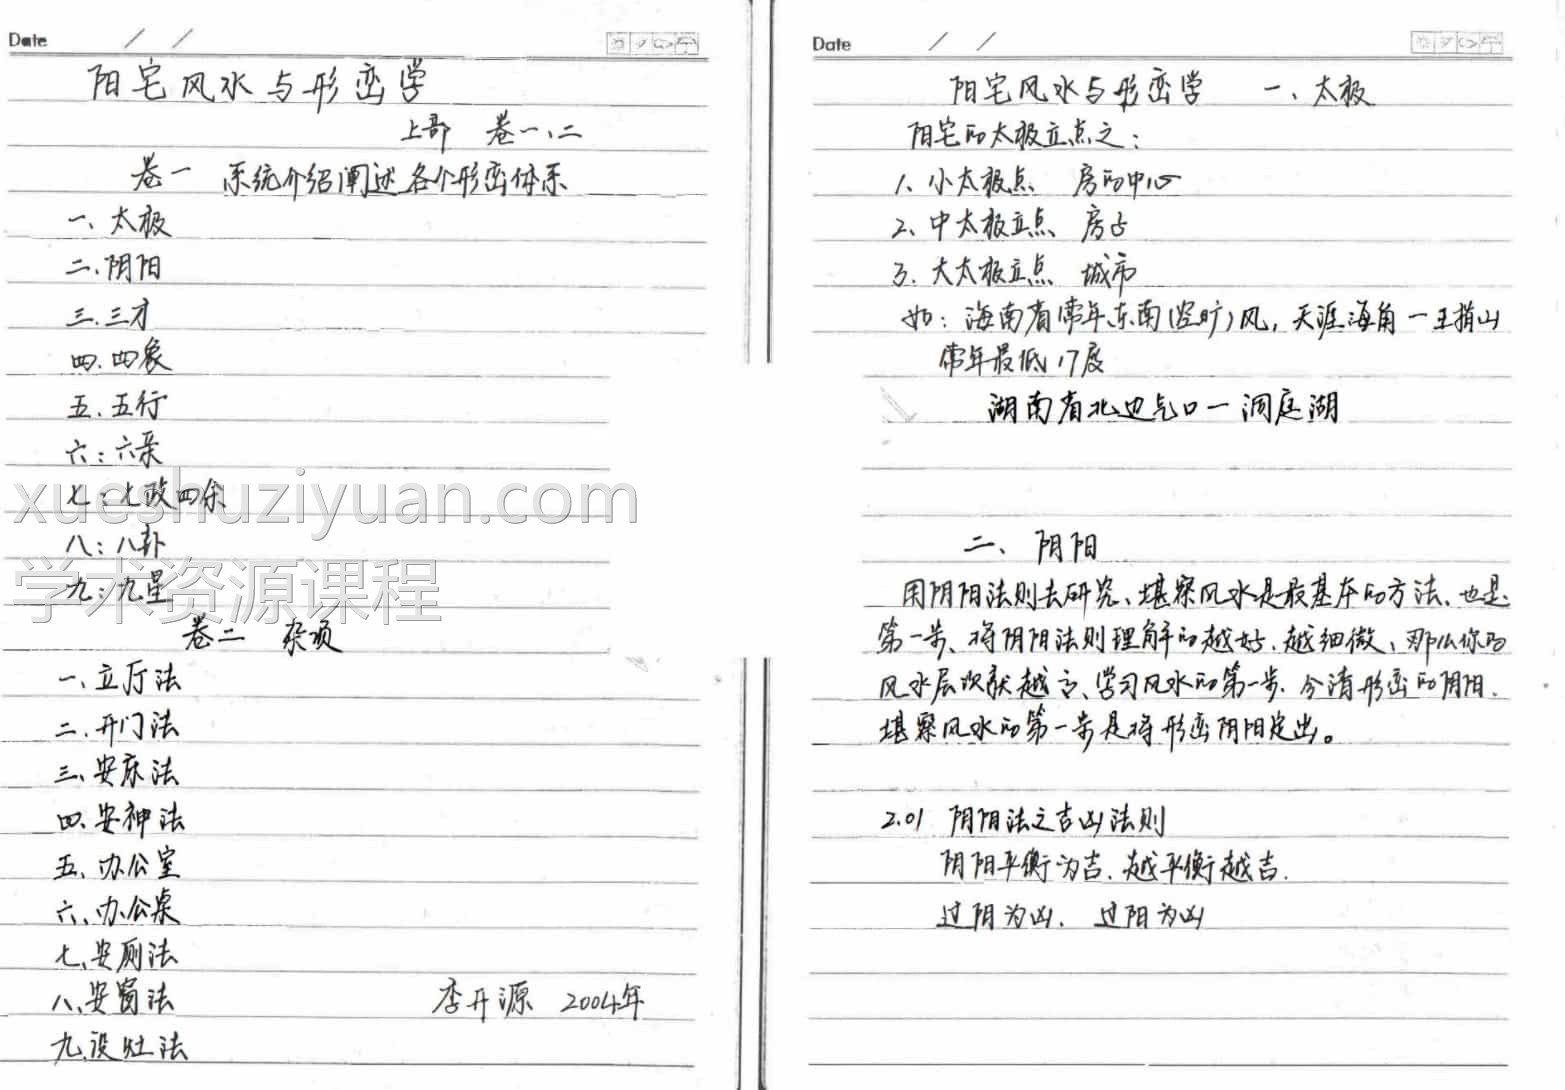 Date / /
阳宅风水与形峦学
上部 卷一、二
卷一 系统介绍阐述各个形峦体系
一、太极
二、阴阳
三、三才
四、四象
五、五行
六：六亲
七：七政四余
八：八卦
九：九星
卷二 杂项
一、立厅法
二、开门法
三、安床法
四、安神法
五、办公室
六、办公桌
七、安厕法
八、安窗法
李开源 2004年
九、设灶法
xueshuziyuan.com
学术资源课程
Date / /
阳宅风水与形峦学 一、太极
阳宅的太极立点之：
1、小太极点 房的中心
2、中太极立点 房占
3、大太极立点 城市
如：海南省常年东南(空旷)风，天涯海角一五指山
常年最低17度
湖南省北边气口一洞庭湖
二、阴阳
用阴阳法则去研究、堪察风水是最基本的方法、也是
第一步、将阴阳法则理解的越好．越细微，那么你的
风水层次就越高、学习风水的第一步．分清形峦的阴阳．
堪察风水的第一步是将形峦阴阳定出。
2.01 阴阳法之吉凶法则
阴阳平衡为吉．越平衡越吉．
过阴为凶． 过阳为凶